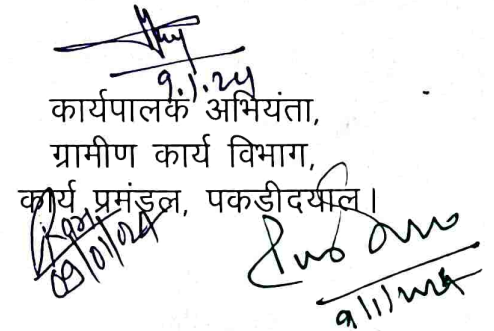 9.1.24
कार्यपालक अभियंता,
ग्रामीण कार्य विभाग,
कार्य प्रमंडल, पकडीदयाल।
09/01/24